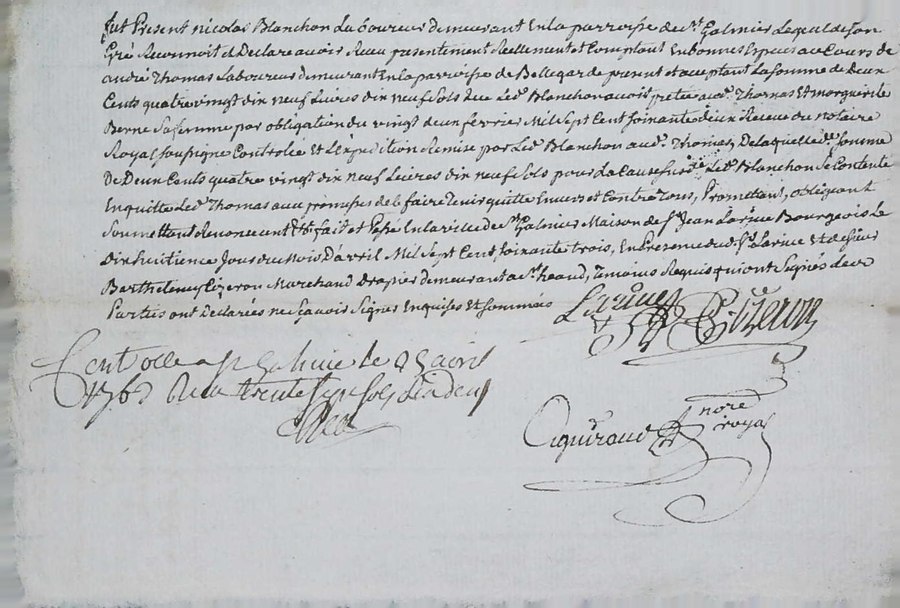 fut Present nicolas Blanchon Laboureur demeurant En la parroisse de St Galmier Lequel de son
Gré Reconnoit et Declare avoir Receu presentement Reellement et Comptant En bonnes Especes au Cours de
andré Thomas Laboureur demeurant En la parroisse de Bellegarde present et acceptant La somme de Deux
Cents quatre vingt dix neuf Livres dix neuf sols que Led. Blanchon avoit pretée aud. Thomas Et marguerite
Berne sa femme par obligation du vingt deux fevrier Mil Sept Cent soixante deux Receue du notaire
Royal soussigne Controlée Et L'expedition Remise par Led. Blanchon aud. Thomas, De laquelle de. somme
De Deux Cents quatre vingt dix neuf Livres dix neuf sols pour La Cause susd. Led. Blanchon Se Contente
En quitte Led. Thomas avec promesses de le faire Tenir quitte Envers et Contre Tous, Promettant, obligeant
soumettant Renoncent fait et Passé En la ville de St Galmier Maison de Sr. Jean Larive Bourgeois Le
Dixhuitieme Jour du Mois D'avril Mil Sept Cent soixante trois, En Presence dud. Sr. Larive Et de Sieur
Barthelemy Cizeron Marchand drapier demeurant a St. heand, Temoins Requis qui ont Signés Les
Parties ont Declarées ne Sçavoir Signer Enquises Et sommées
Larive Cizeron
Controllé a St Galmier le 25 avril
1763 Recu trente Sept sols Six den
aguiraud nore
royal